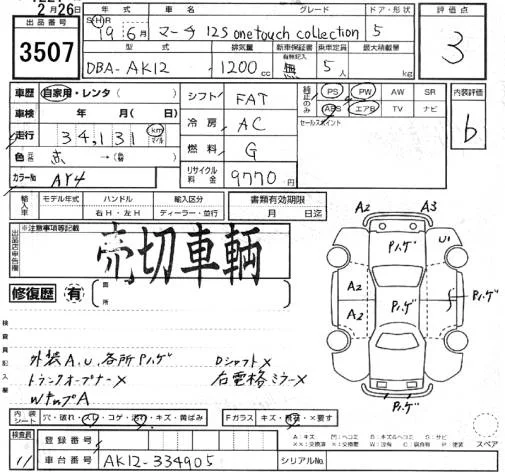 2月26日
出品番号 3507
年式 SH 19年6月 車名 マーチ 12S one touch collection グレード ドア・形状 5
型式 DBA-AK12 排気量 1200cc 新車保証書 有無記入 無 乗車定員 5人 最大積載量 kg
評価点 3
車歴 自家用・レンタ( )
車検 年 月(日)
走行 34,131 km マイル
色 元色 赤 →(替)
カラーNo AY4
シフト FAT
冷房 AC
燃料 G
リサイクル料金 9770円
純正のみ PS PW AW SR
ABS エアB TV ナビ
セールスポイント
内装評価 b
輸入車 モデル年式 ハンドル 右H・左H 輸入区分 ディーラー・並行
書類有効期限 月 日迄
出品店申告欄 ※注意事項等記載
売切車輌
修復歴 有 箇所
A2 A3
Pハゲ U1
A2 Pハゲ Pハゲ
A2
Pハゲ
検査員記入欄
外装A.U.各所Pハゲ Dシャフト✕
トランクオープナー✕ 右電格ミラー✕
Wナップ A
内装シート 穴・破れ・スレ・コゲ・汚れ・キズ・黄ばみ
Fガラス キズ・飛石・✕要す
A:キズ U:ヘコミ B:キズ&ヘコミ S:サビ
XX:交換済 X:交換要 W:波 C:腐食 P:塗装
スペア
検査員 11
登録番号
車台番号 AK12-334905 シリアルNo.